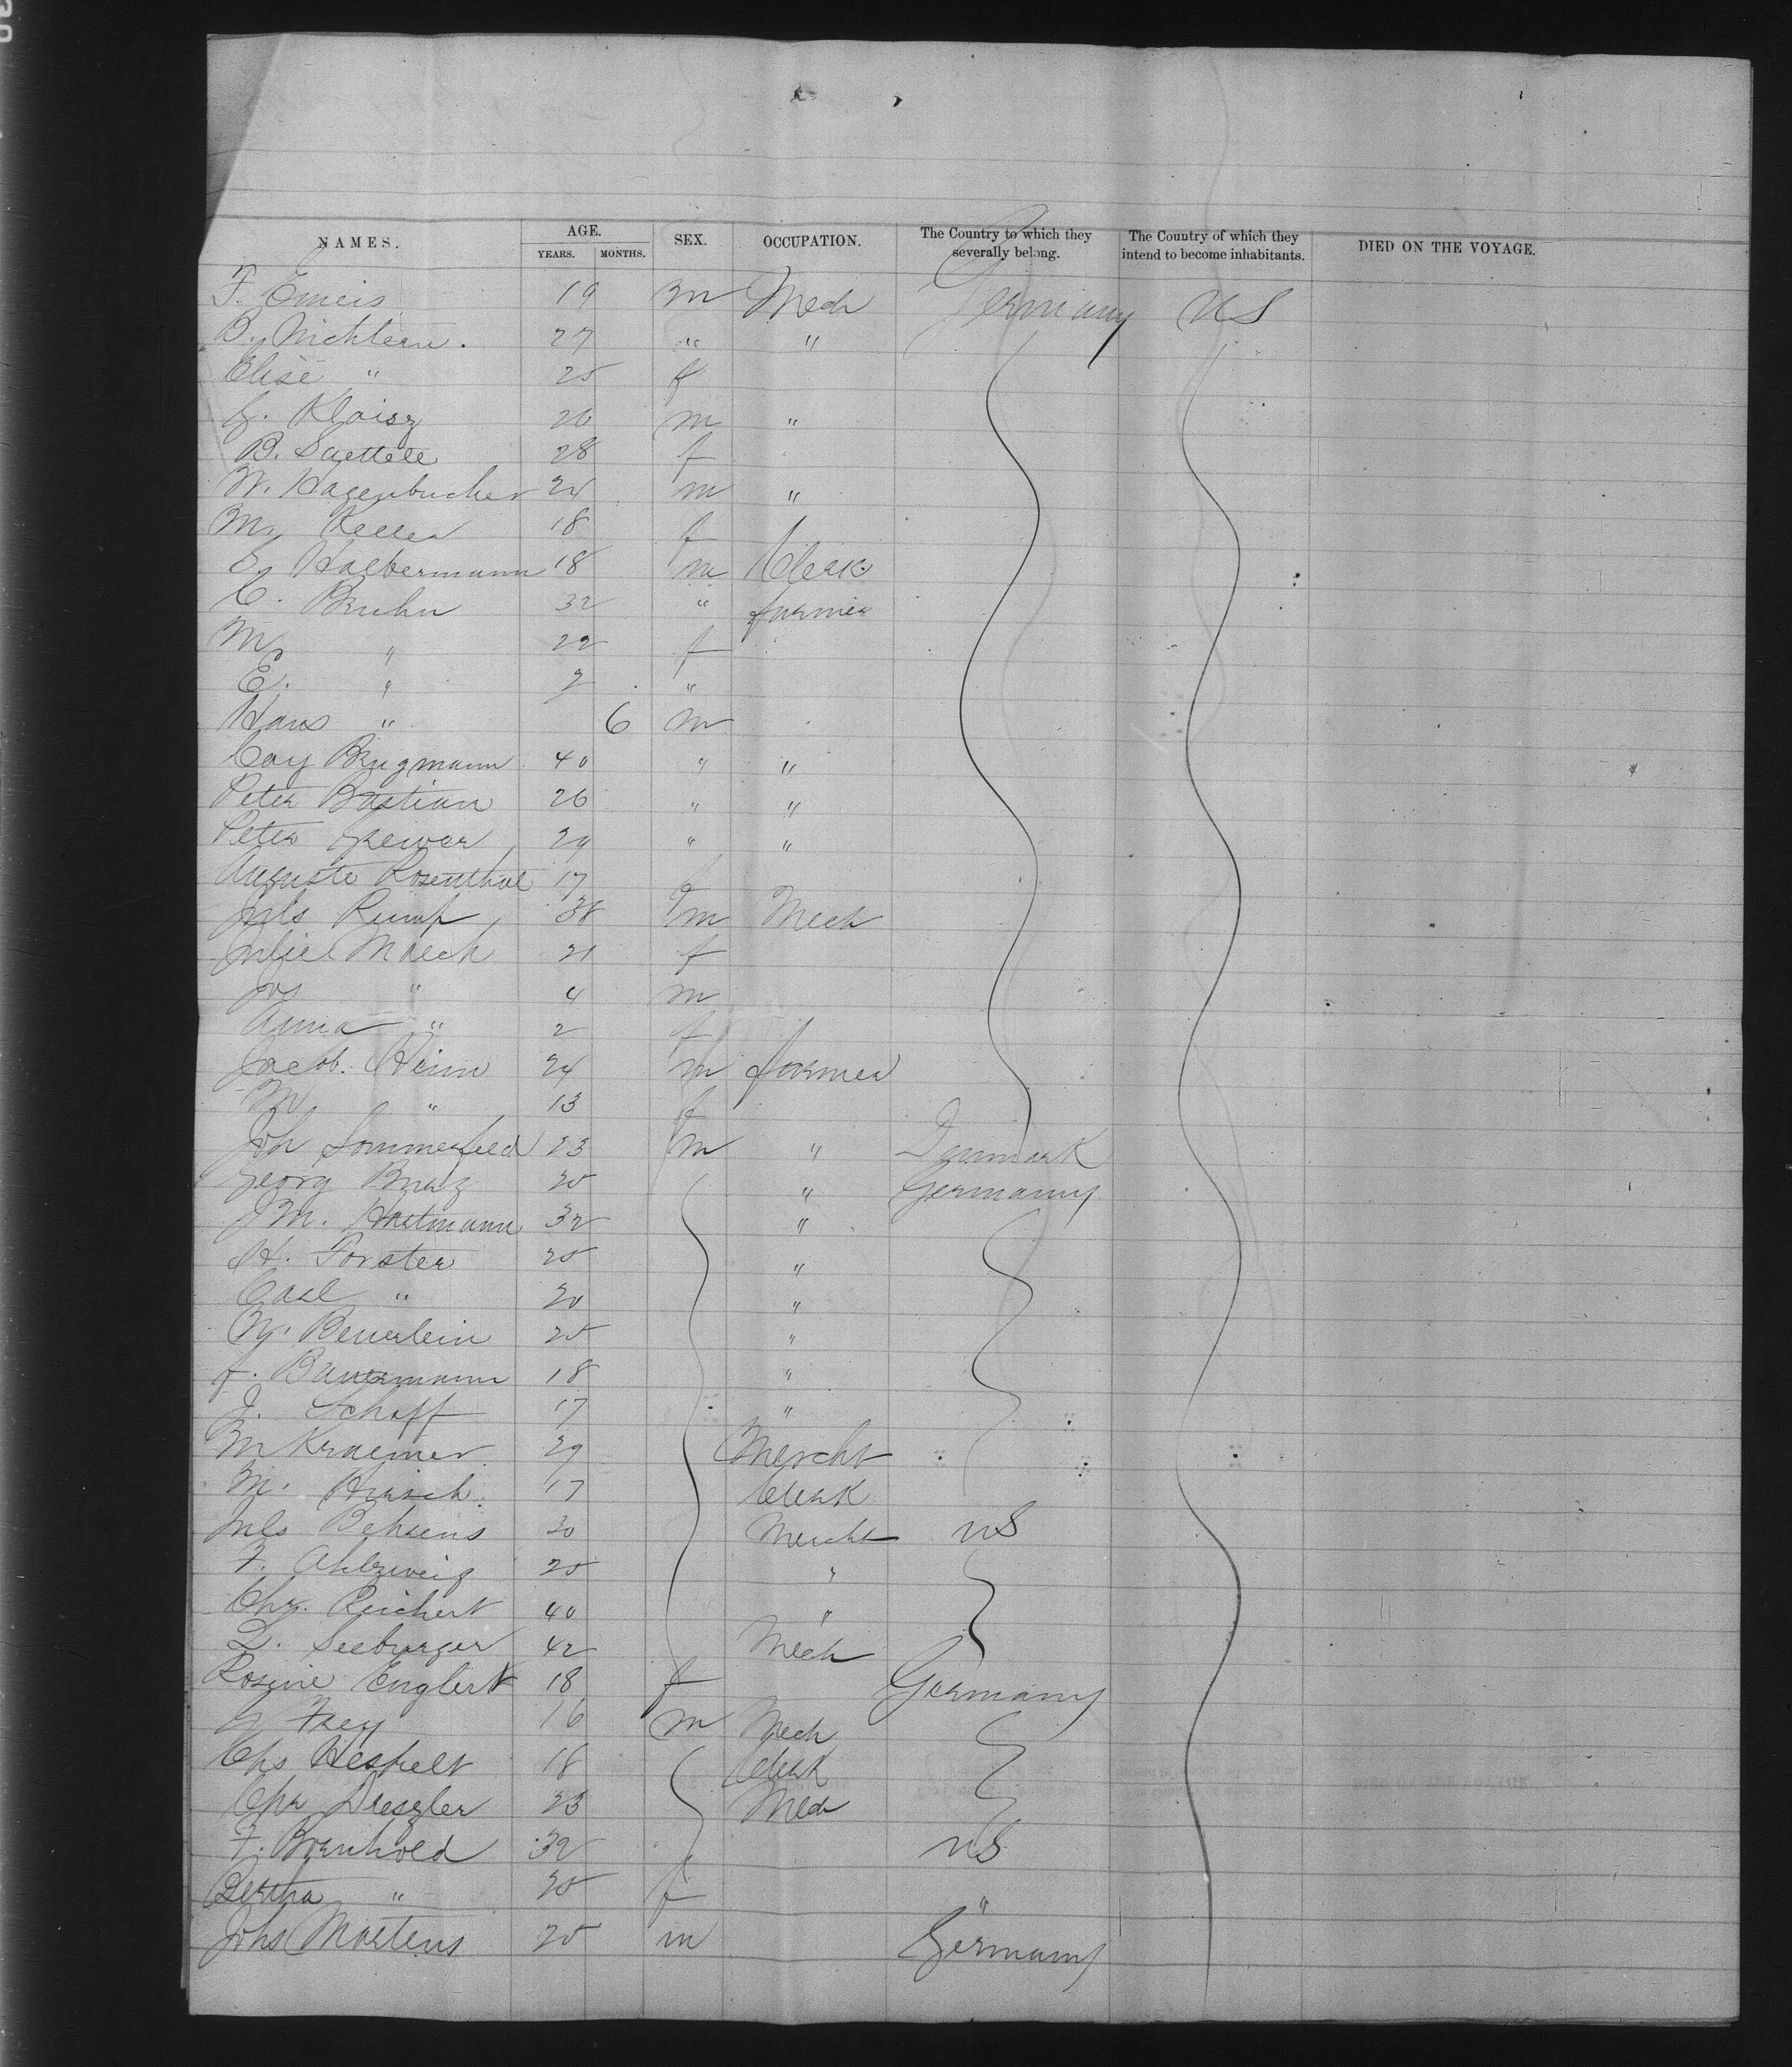 NAMES. AGE. SEX. OCCUPATION. The Country to which they severally belong. The Country of which they intend to become inhabitants. DIED ON THE VOYAGE.
YEARS. MONTHS.
F. Emeis 19 m Mech Germany US
B. 27 " "
Elise " 25 f
G. Kloisz 26 m "
B. 28 f
W. Hagenbucher 24 m "
M. Keller 18 f
E. Halbermann 18 m Clerk
C. Bruhn 32 " farmer
M. " 22 f
E. " 2 "
Hans " 6 m
Cay Brugmann 40 " "
Peter Bastian 26 " "
Peter 29 " "
Auguste Rosenthal 17 f
Juls Rump 38 m Mech
21 f
Jos " 4 m
Anna " 2 f
Jacob. Heim 24 m farmer
M " 13 f
Joh Sommerfeld 23 m " Denmark
Georg 20 " Germany
J M. Hartmann 32 "
H. Forster 20 "
Carl " 20 "
Beuerlein 25 "
F. Bauermann 18 "
J. Schaff 17 "
M Kraemer 29 Mercht
M. Hirsch 17 Clerk
Juls Behrens 30 Mercht US
F. Ahlzweig 25 "
Chr. Reichert 40 "
L. Seeburger 42 Mech
Rosine Englert 18 f Germany
G Frey 16 m Mech
Chs Heshelt 18 Clerk
Chr Dreszler 23 Mech
F. Bornhold 32 US
Bertha " 20 f "
Johs Martens 25 m Germany